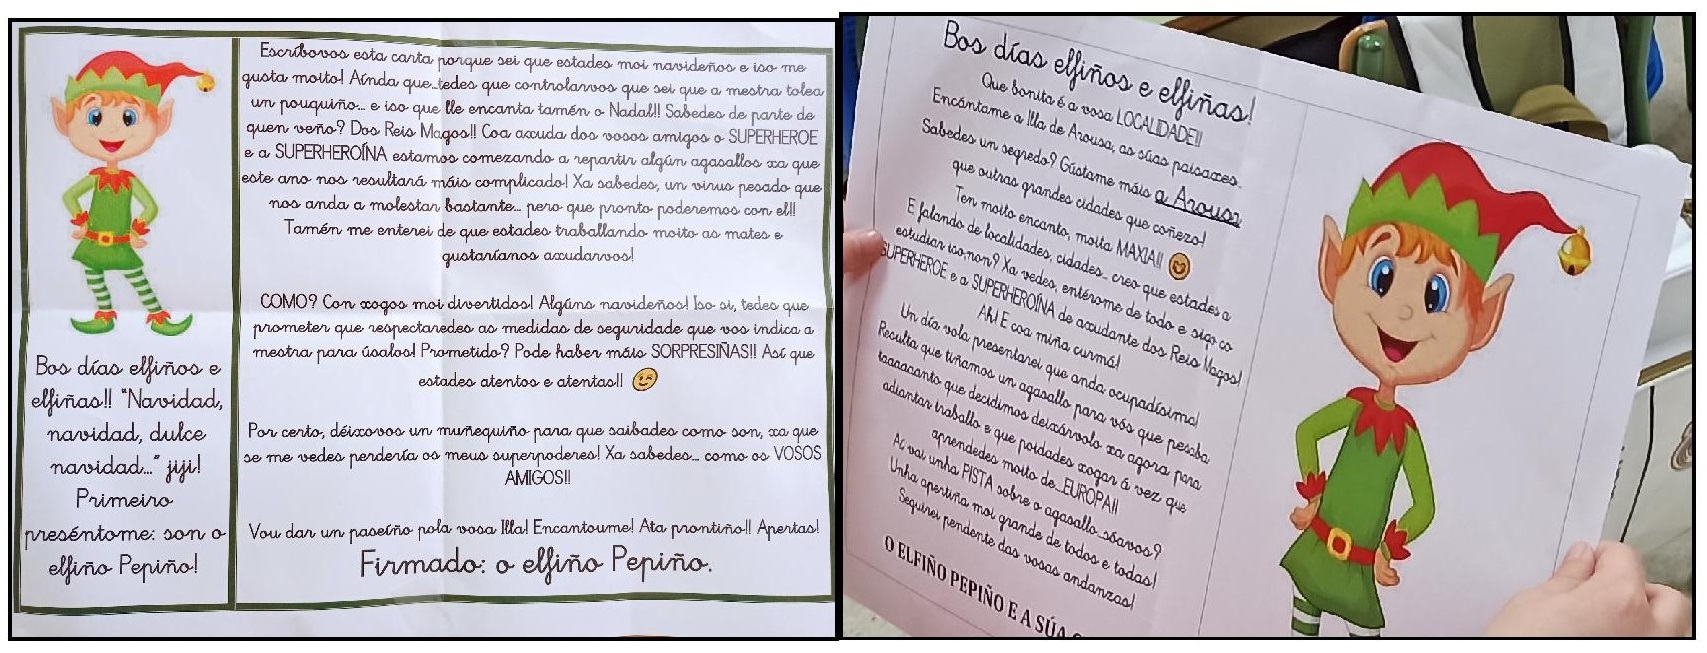 Bos días elfiños e
elfiñas!! "Navidad,
navidad, dulce
navidad..." jiji!
Primeiro
preséntome: son o
elfiño Pepiño!
Escríbovos esta carta porque sei que estades moi navideños e iso me
gusta moito! Aínda que...tedes que controlarvos que sei que a mestra tolea
un pouquiño... e iso que lle encanta tamén o Nadal!! Sabedes de parte de
quen veño? Dos Reis Magos!! Coa axuda dos vosos amigos o SUPERHEROE
e a SUPERHEROÍNA estamos comezando a repartir algún agasallos xa que
este ano nos resultará máis complicado! Xa sabedes, un virus pesado que
nos anda a molestar bastante... pero que pronto poderemos con el!!
Tamén me enterei de que estades traballando moito as mates e
gustaríanos axudarvos!
COMO? Con xogos moi divertidos! Algúns navideños! Iso si, tedes que
prometer que respectaredes as medidas de seguridade que vos indica a
mestra para úsalos! Prometido? Pode haber máis SORPRESIÑAS!! Así que
estades atentos e atentas!!
Por certo, déixovos un muñequiño para que saibades como son, xa que
se me vedes perdería os meus superpoderes! Xa sabedes... como os VOSOS
AMIGOS!!
Vou dar un paseíño pola vosa Illa! Encantoume! Ata prontiño!! Apertas!
Firmado: o elfiño Pepiño.
Bos días elfiños e elfiñas!
Que bonita é a vosa LOCALIDADE!!
Encántame a Illa de Arousa, as súas paisaxes...
Sabedes un segredo? Gústame máis a Arousa
que outras grandes cidades que coñezo!
Ten moito encanto, moita MAXIA!!
E falando de localidades, cidades... creo que estades a
estudiar iso,non? Xa vedes, entérome de todo e sigo co
SUPERHEROE e a SUPERHEROÍNA de axudante dos Reis Magos!
Ah! E coa miña curmá!
Un día vola presentarei que anda ocupadísima!
Resulta que tiñamos un agasallo para vós que pesaba
taaaacanto que decidimos deixárvolo xa agora para
adiantar traballo e que poidades xogar á vez que
aprendedes moito de...EUROPA!!
Aí vai unha PISTA sobre o agasallo...sóavos?
Unha apertiña moi grande de todos e todas!
Seguirei pendente das vosas andanzas!
O ELFIÑO PEPIÑO E A SÚA